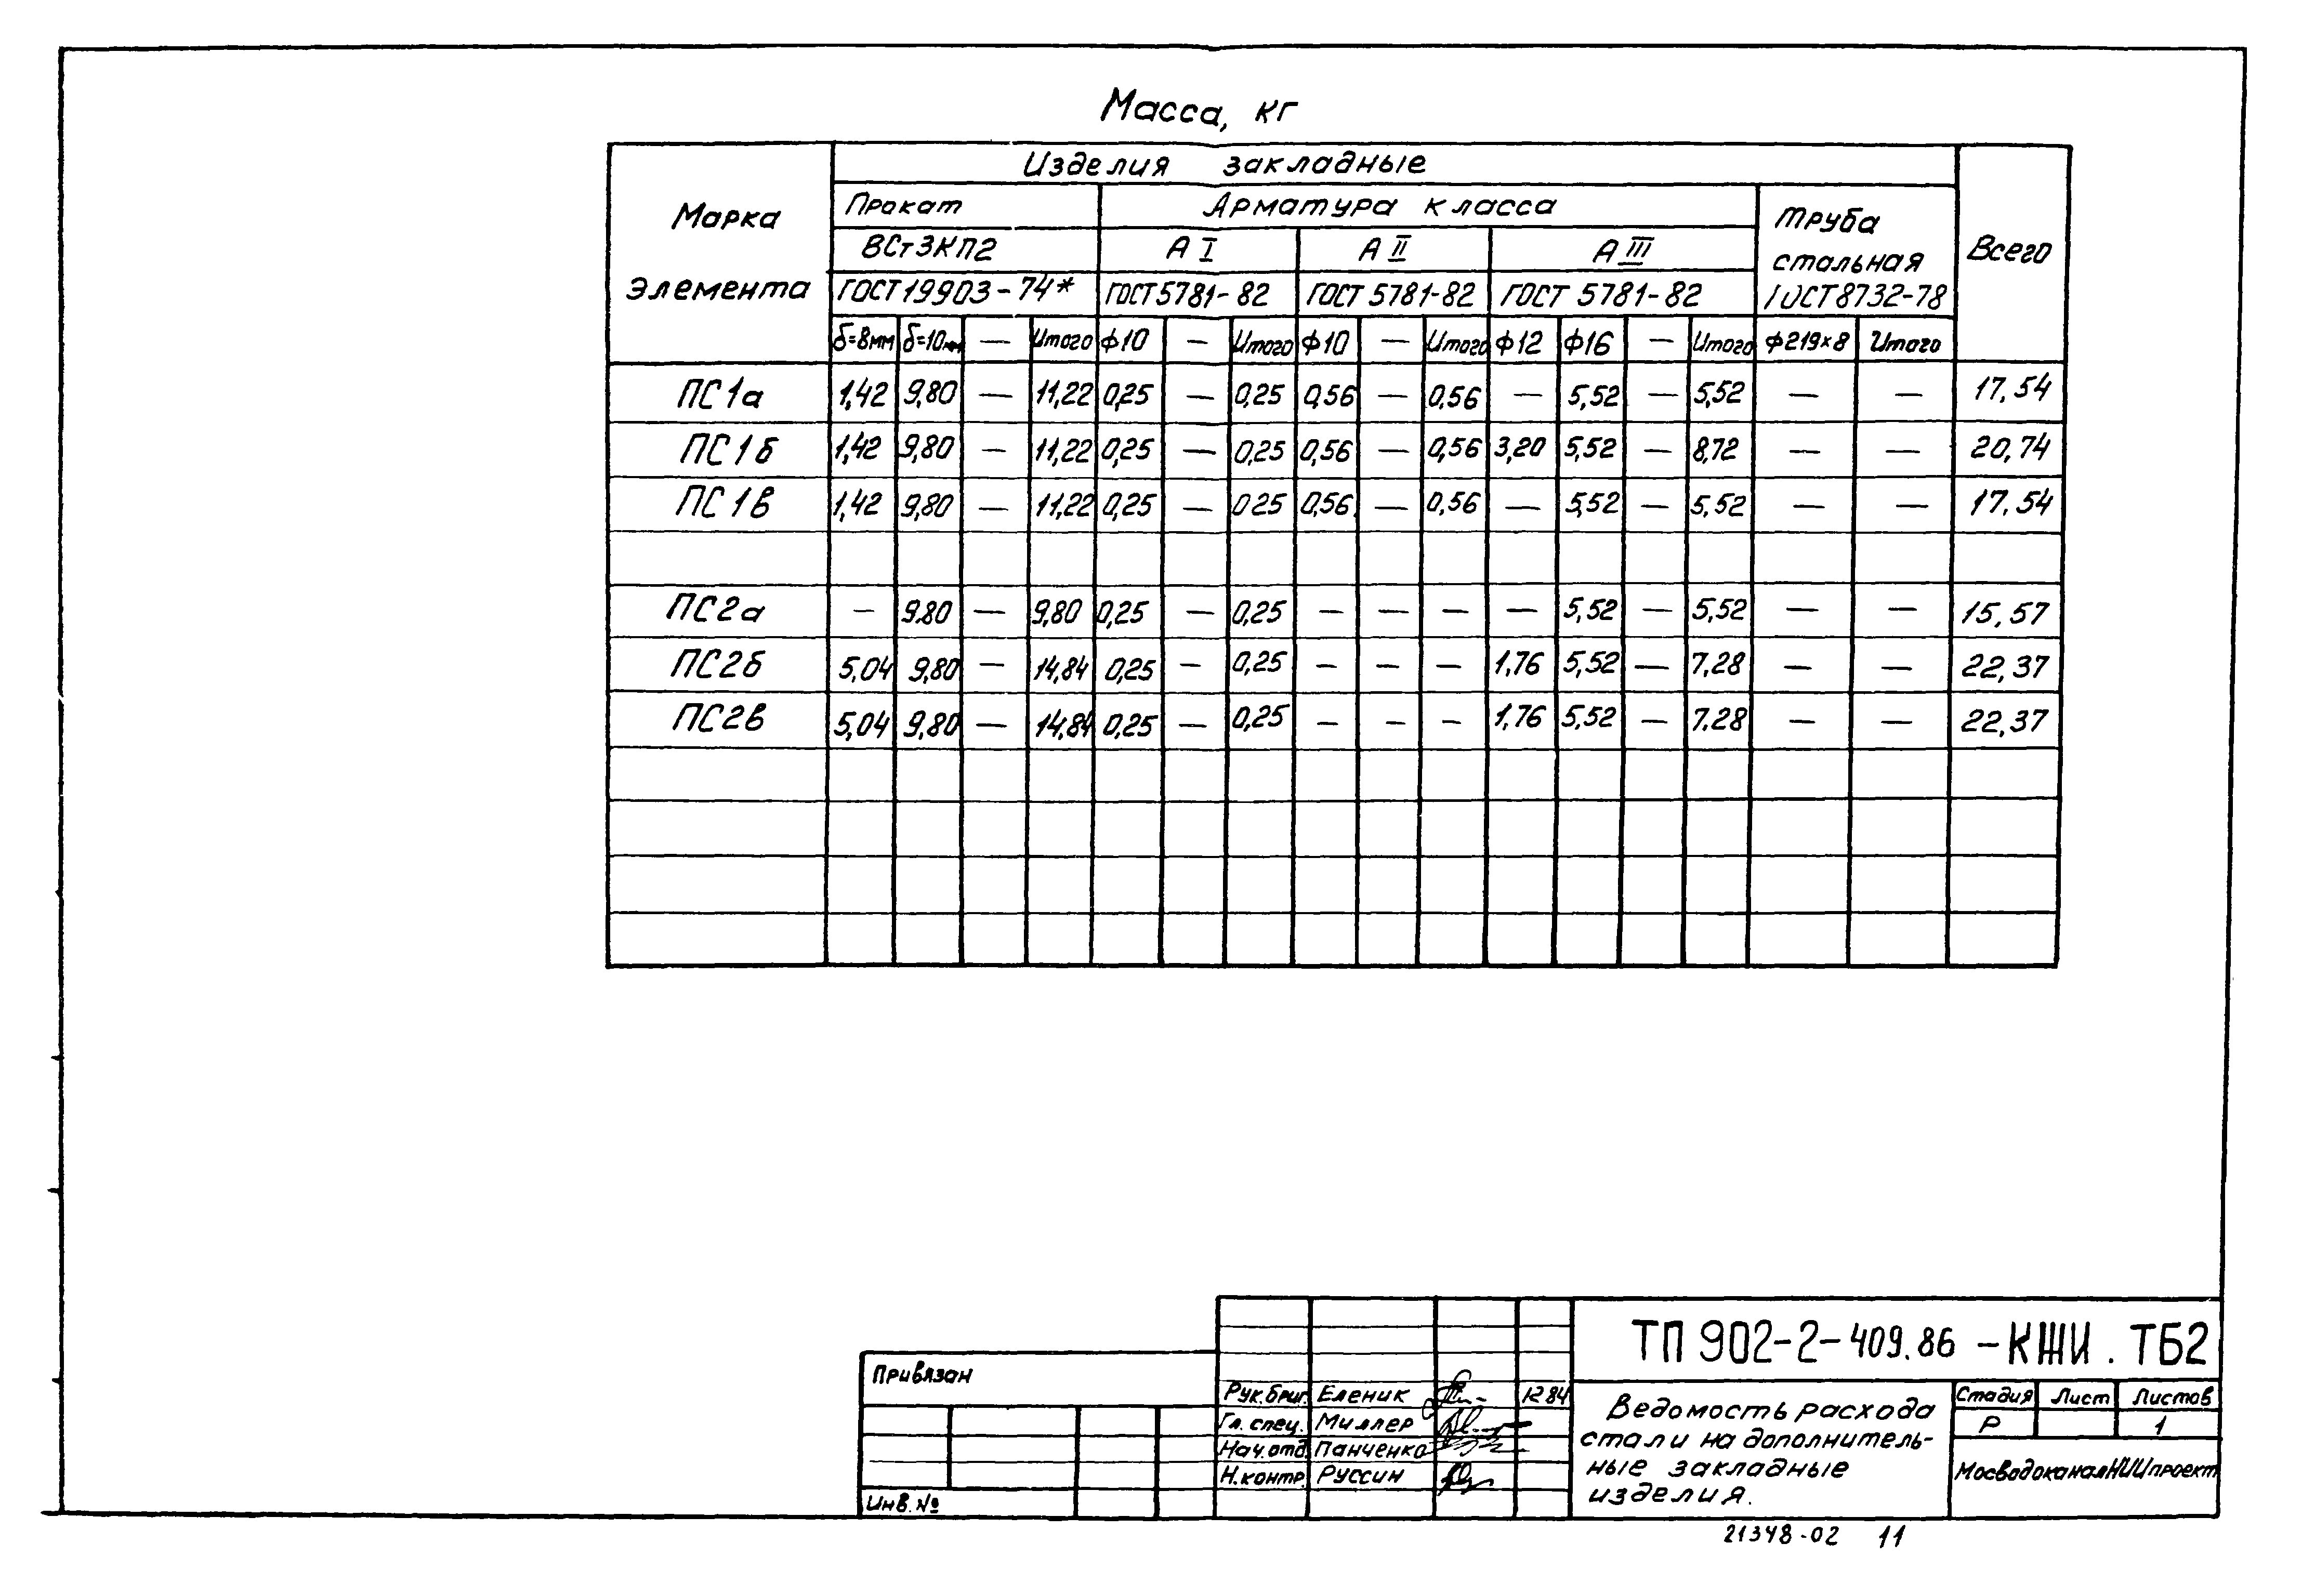 Масса, кг
Марка элемента
Изделия закладные
Всего
Прокат
Арматура класса
Труба стальная ГОСТ 8732-78
ВСт3КП2
А I
А II
А III
ГОСТ 19903-74*
ГОСТ 5781-82
ГОСТ 5781-82
ГОСТ 5781-82
δ=8мм δ=10мм — Итого ф10 — Итого ф10 — Итого ф12 ф16 — Итого ф219×8 Итого
ПС1а 1,42 9,80 — 11,22 0,25 — 0,25 0,56 — 0,56 — 5,52 — 5,52 — — 17,54
ПС1б 1,42 9,80 — 11,22 0,25 — 0,25 0,56 — 0,56 3,20 5,52 — 8,72 — — 20,74
ПС1в 1,42 9,80 — 11,22 0,25 — 025 0,56 — 0,56 — 5,52 — 5,52 — — 17,54
ПС2а — 9,80 — 9,80 0,25 — 0,25 — — — — 5,52 — 5,52 — — 15,57
ПС2б 5,04 9,80 — 14,84 0,25 — 0,25 — — — 1,76 5,52 — 7,28 — — 22,37
ПС2в 5,04 9,80 — 14,84 0,25 — 0,25 — — — 1,76 5,52 — 7,28 — — 22,37
Привязан
Инв. №
Рук.бриг. Еленик 12 84
Гл. спец. Миллер
Нач.отд. Панченко
Н.контр. Руссин
ТП 902-2-409.86 - КЖИ. ТБ2
Ведомость расхода
стали на дополнитель-
ные закладные
изделия.
Стадия Лист Листов
Р 1
МосводоканалНИИпроект
21348-02 11